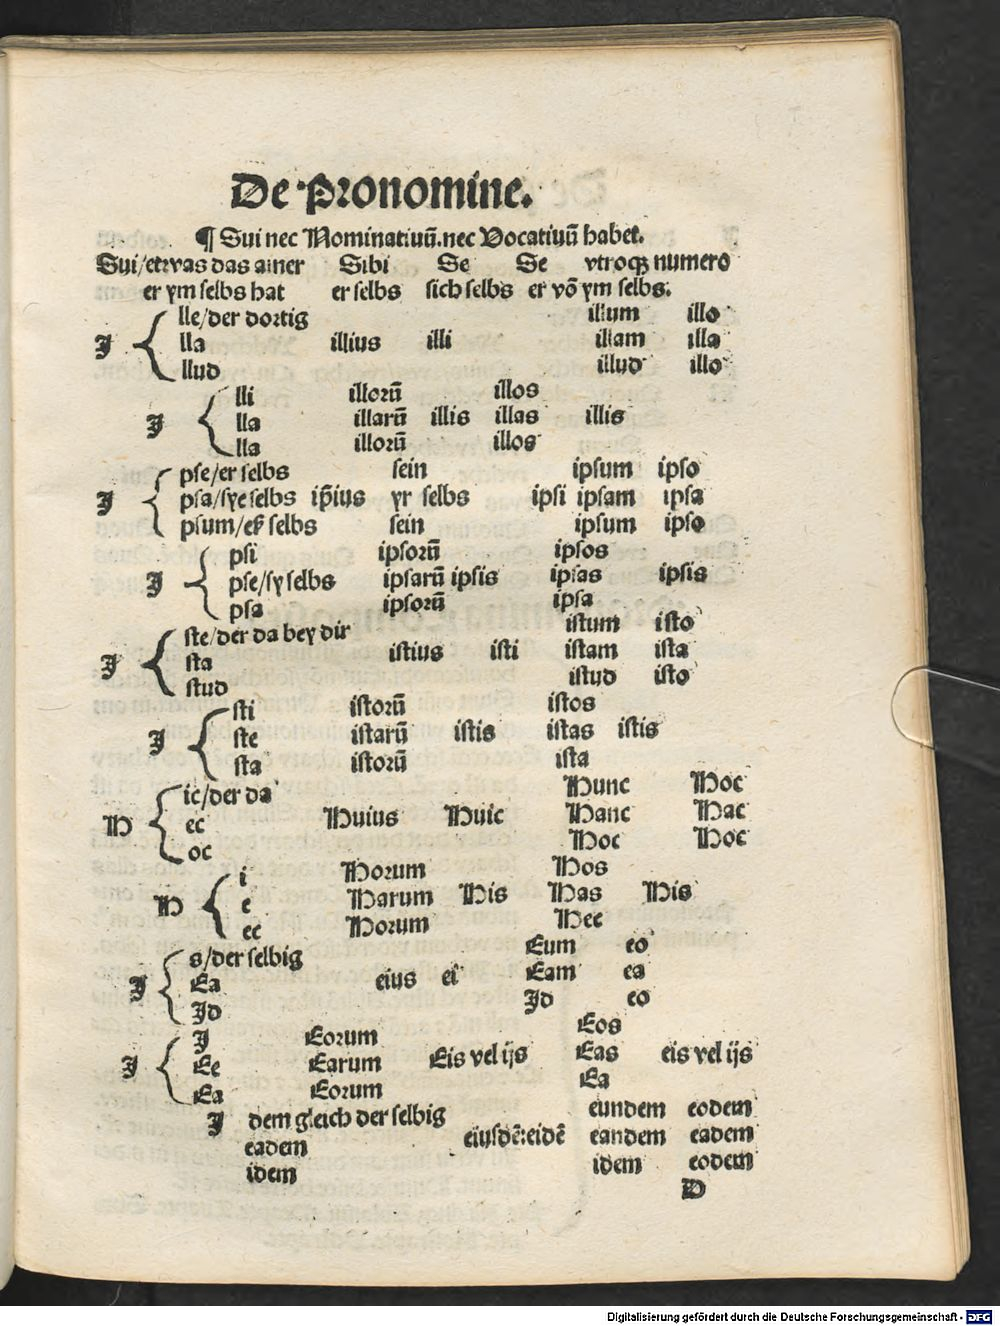 De Pronomine.
¶ Sui nec Nominatiuū. nec Vocatiuū habet.
Sui/etwas das ainer Sibi Se Se vtroqȝ numero
er ym selbs hat er selbs sich selbs er vō ym selbs.
lle/der dortig illum illo
I lla illius illi illam illa
llud illud illo
lli illorū illos
I lla illarū illis illas illis
lla illorū illos
pse/er selbs sein ipsum ipso
I psa/sye selbs ip̄ius yr selbs ipsi ipsam ipsa
psum/eß selbs sein ipsum ipso
psi ipsorū ipsos
I pse/sy selbs ipsarū ipsis ipsas ipsis
psa ipsorū ipsa
ste/der da bey dir istum isto
I sta istius isti istam ista
stud istud isto
sti istorū istos
I ste istarū istis istas istis
sta istorū ista
ic/der da Hunc Hoc
H ec Huius Huic Hanc Hac
oc Hoc Hoc
i Horum Hos
H e Harum His Has His
ec Horum Hec
s/der selbig Eum eo
I Ea eius ei Eam ea
Id Id eo
I Eorum Eos
I Ee Earum Eis vel ijs Eas eis vel ijs
Ea Eorum Ea
I dem gleich der selbig eundem eodem
eadem eiusdē: eidē eandem eadem
idem idem eodem
D
Digitalisierung gefördert durch die Deutsche Forschungsgemeinschaft - DFG